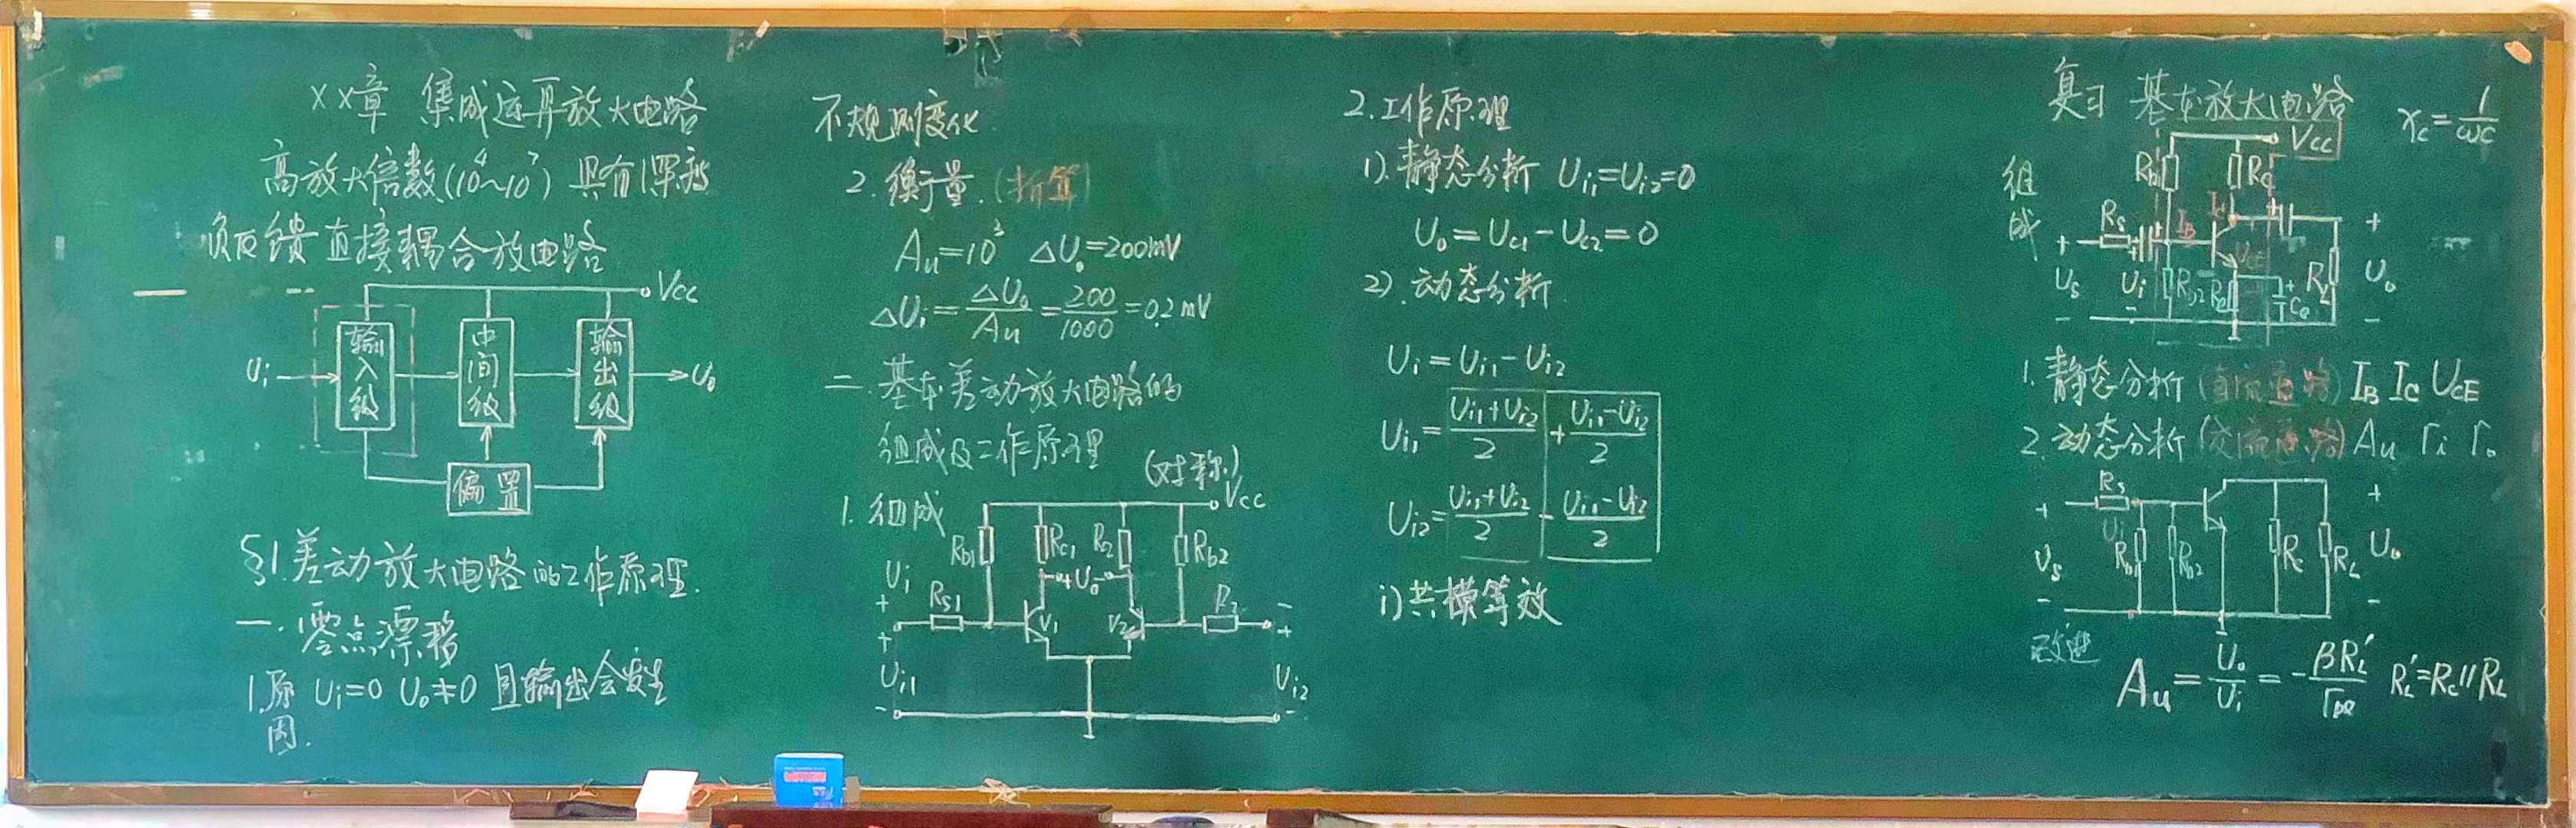 ××章 集成运算放大电路
高放大倍数(10⁴~10⁷) 具有深度
负反馈直接耦合放电路
Vcc
Ui 输入级 中间级 输出级 U₀
偏置
§1.差动放大电路的工作原理.
一.零点漂移
1.原因. Ui=0 U₀≠0 且输出会发生
不规则变化.
2.衡量.(折算)
Au=10³ ΔU₀=200mV
ΔUi=ΔU₀/Au=200/1000=0.2mV
二.基本差动放大电路的
组成及工作原理
1.组成 (对称.)
Vcc
Rb1 Rc1 R2 Rb2
Ui + U₀ -
+ Rs1 V1 V2 R2 -
+ +
Ui1 Ui2
- -
2.工作原理
1).静态分析 Ui1=Ui2=0
U₀=Uc1-Uc2=0
2).动态分析.
Ui=Ui1-Ui2
Ui1=(Ui1+Ui2)/2+(Ui1-Ui2)/2
Ui2=(Ui1+Ui2)/2-(Ui1-Ui2)/2
i)共模等效
复习 基本放大电路 Xc=1/ωC
组成
Vcc
Rb1 Rc
Rs IB Ic UCE
+ +
Us Ui Rb2 Re Ce RL U₀
- - -
1.静态分析(直流通路) IB IC UCE
2.动态分析(交流通路) Au ri r₀
Rs
+ +
Us Ui Rb1 Rb2 Rc RL U₀
- -
改进
Au=U₀/Ui=-βRL'/rbe RL'=Rc//RL